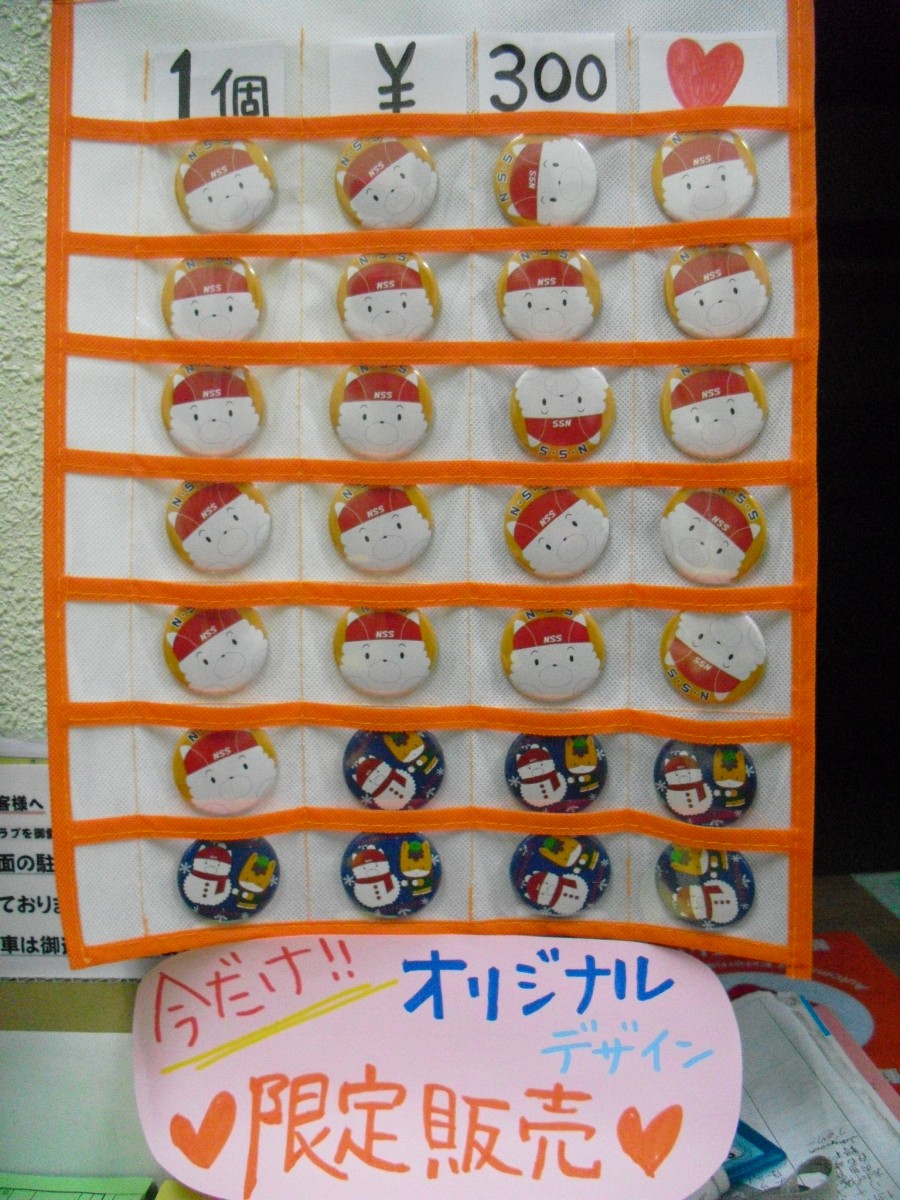 1個 ¥ 300
N·S·S NSS N·S·S NSS N·S·S NSS N·S·S NSS
N·S·S NSS N·S·S NSS N·S·S NSS N·S·S NSS
N·S·S NSS N·S·S NSS N·S·S NSS N·S·S NSS
N·S NSS N·S NSS N·S·S NSS N·S·S NSS
N·S·S NSS N·S·S NSS N·S·S NSS N·S·S NSS
N·S·S NSS
客様へ
ラブを御
面の駐
ており
車は御
今だけ!! オリジナル
デザイン
限定販売